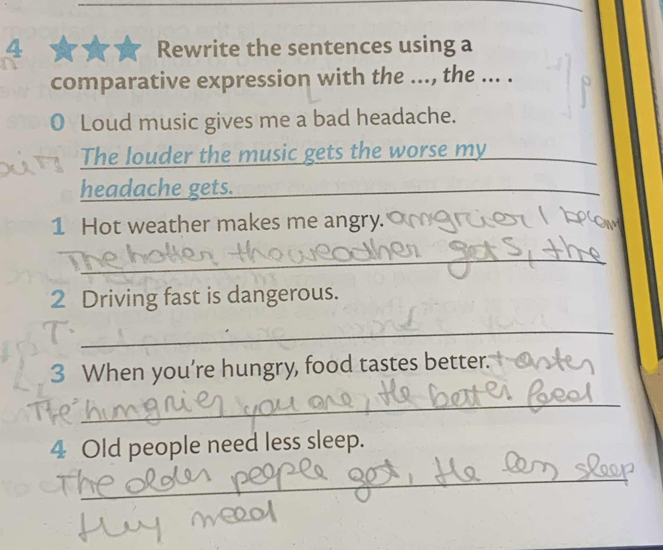 4 Rewrite the sentences using a
comparative expression with the ..., the ... .
0 Loud music gives me a bad headache.
The louder the music gets the worse my
headache gets.
1 Hot weather makes me angry. amgrier I becom
The hotter the weather gets, the
2 Driving fast is dangerous.
T.
3 When you're hungry, food tastes better. tastes
The hungrier you are, the better food
4 Old people need less sleep.
The older people get, the less sleep
they need